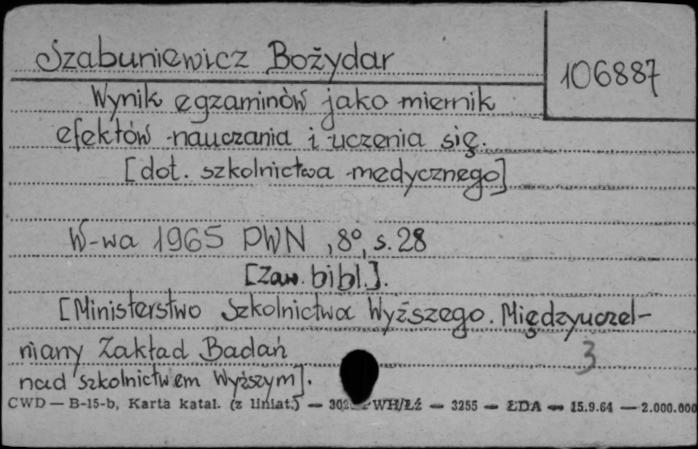 Szabuniewicz Bożydar
106887
Wynik egzaminów jako miernik
efektów nauczania i uczenia się.
[dot. szkolnictwa medycznego]
W-wa 1965 PWN, 8°, s. 28
[Zaw. bibl.].
[Ministerstwo Szkolnictwa Wyższego. Międzyuczel-
niany Zakład Badań
3
nad szkolnictwem Wyższym].
CWD — B-15-b, Karta katal. (z liniat.) — WH/Łź — 3255 — ŁDA — 15.9.64 — 2.000.000